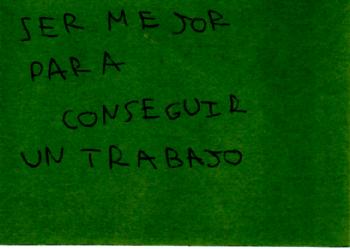 SER MEJOR
PARA
CONSEGUIR
UN TRABAJO